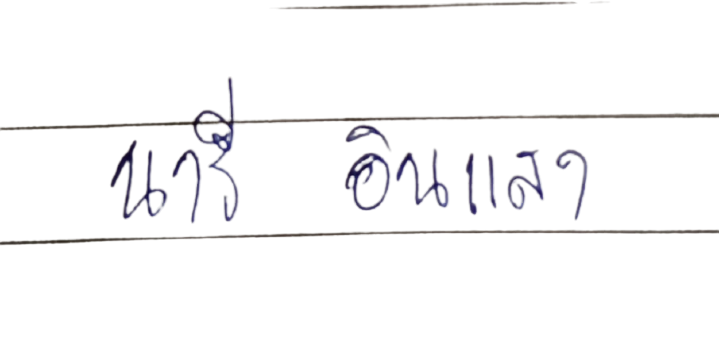 นารี อินแสา